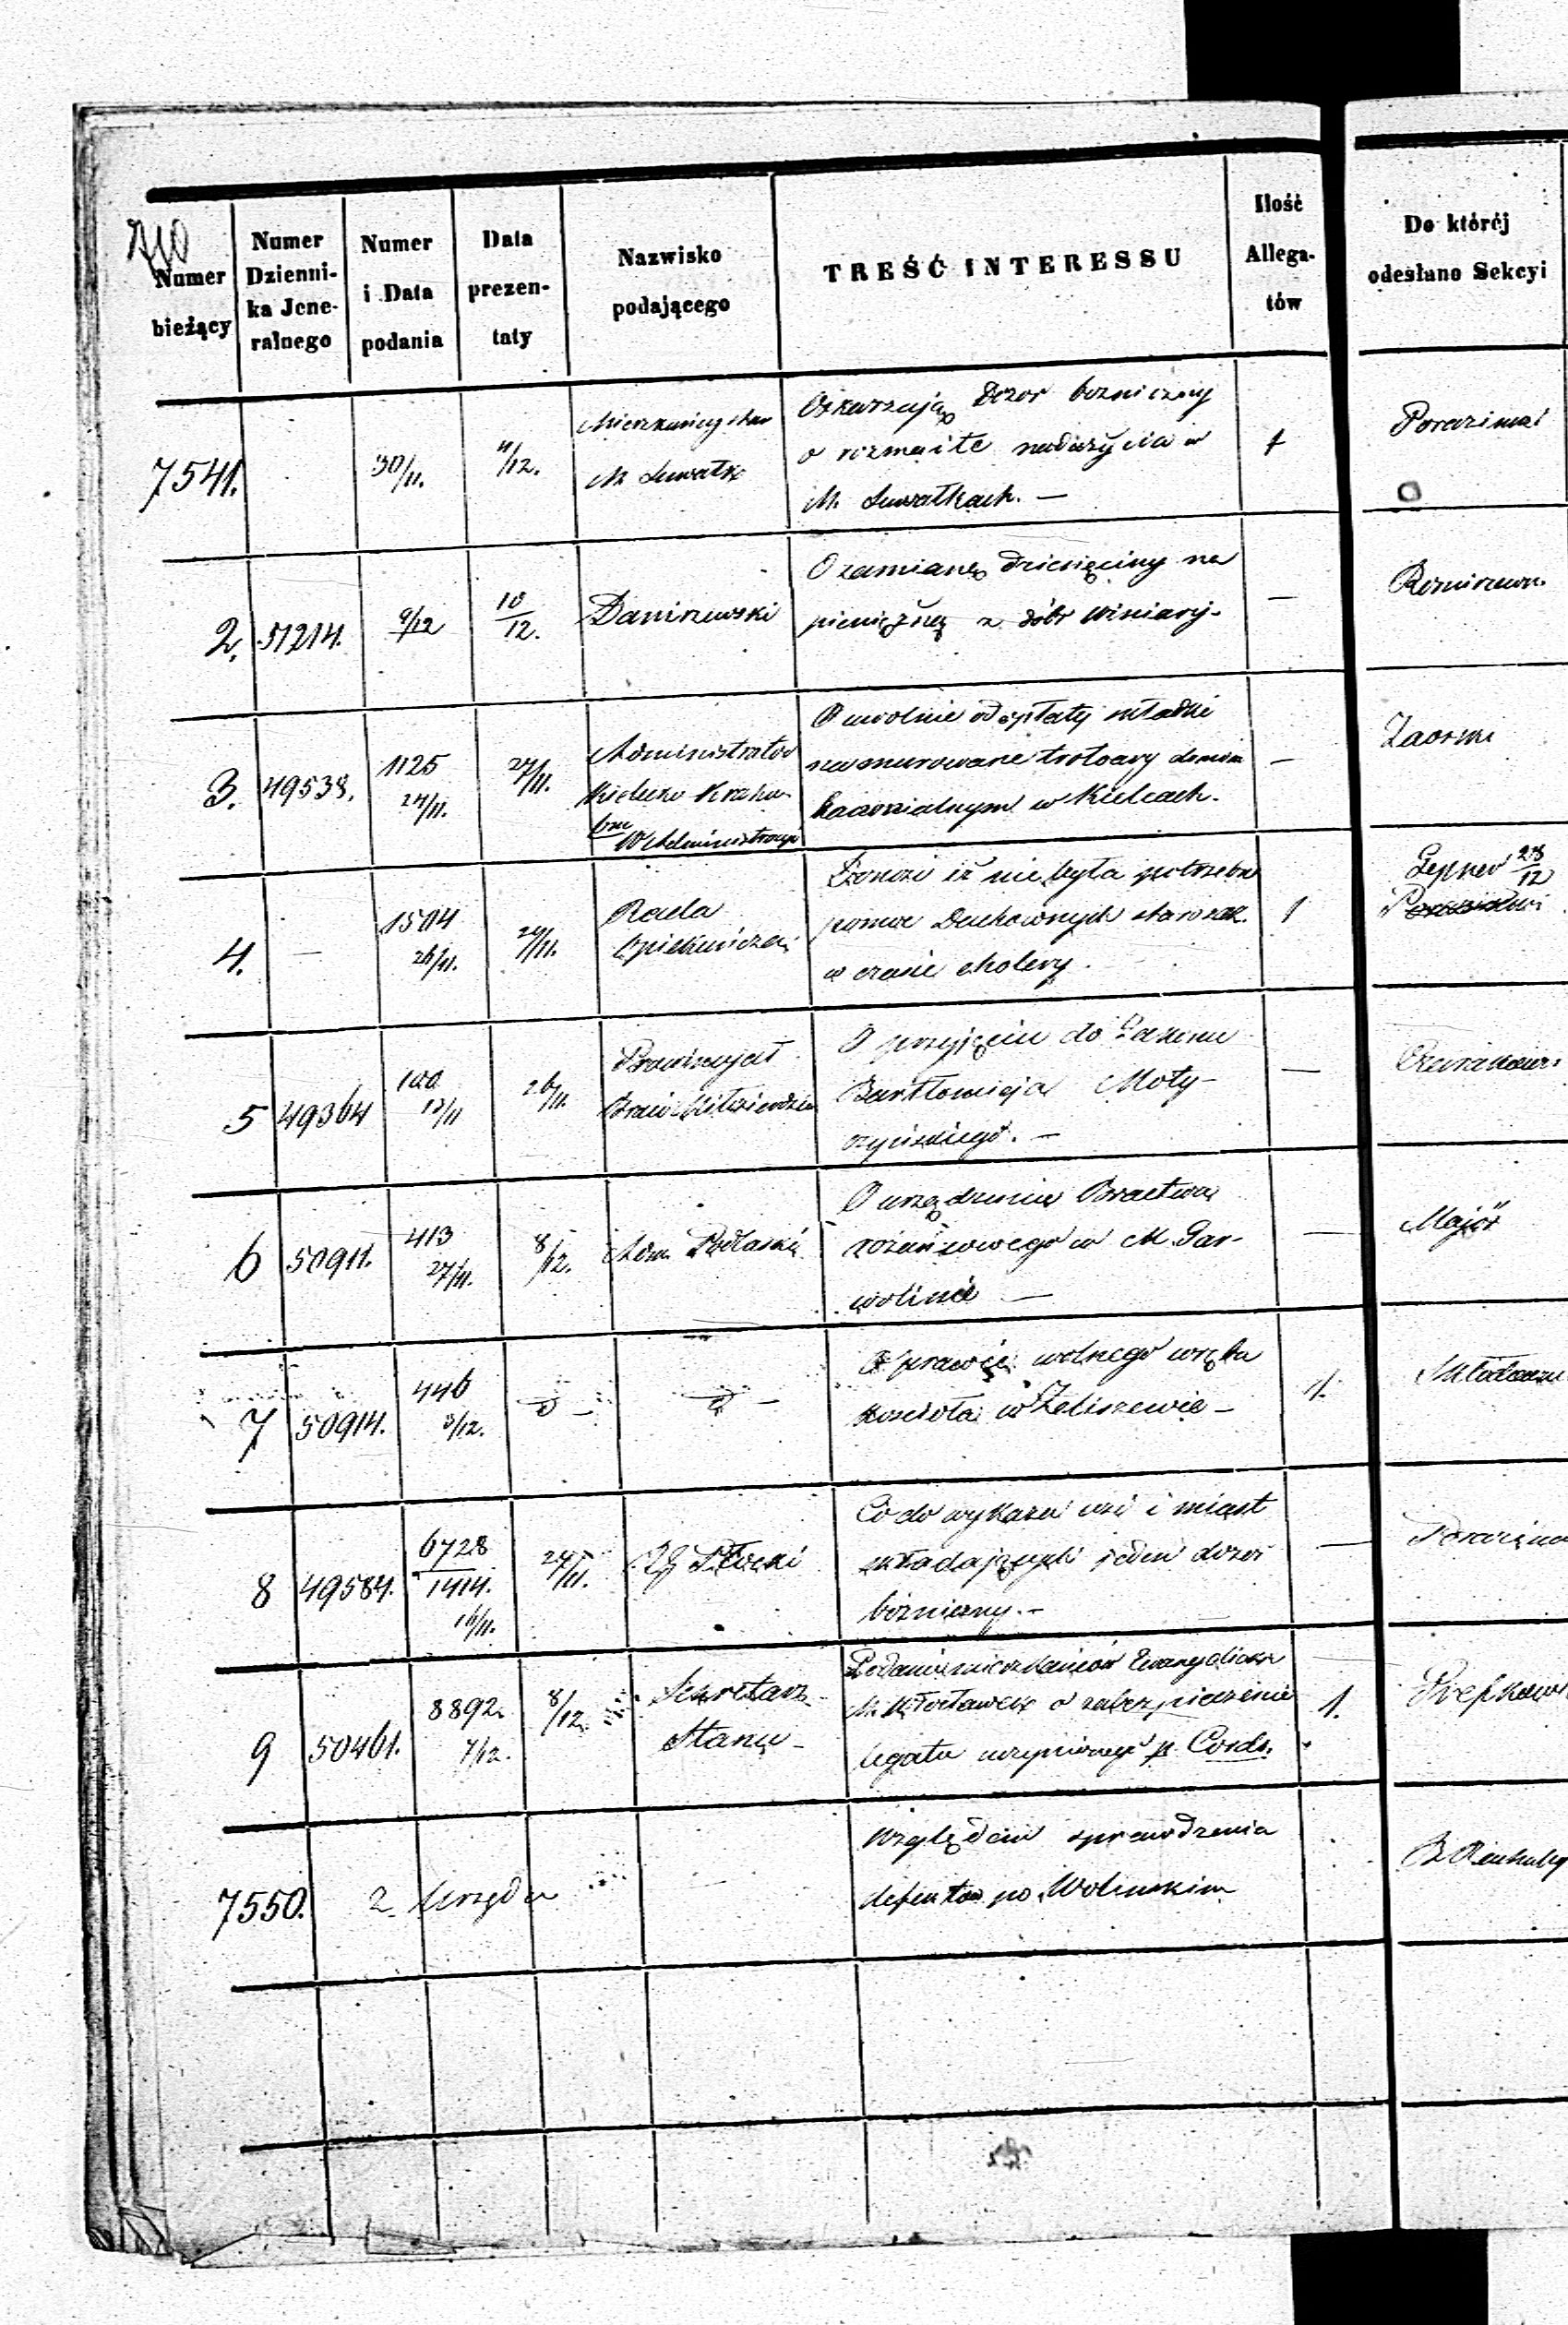 Numer bieżący
Numer Dzienni-
ka Jene-
ralnego
Numer i Data podania
Data prezen-
taty
Nazwisko podającego
TREŚĆ INTERESSU
Ilość Allega-
tów
Do którćj odesłano Sekcyi
7541.
30/11.
4/12.
M. Suwałk
Oskarżają Dozor bozniczny
o rozmaite nadużycia w
M. Suwałkach. —
1
2.
51214.
9/12
10/12.
Daniszewski
O zamianę dziesięciny na
pieniężną z dóbr Winiary.
—
3.
49538.
1125
24/11.
27/11.
Administrator
O uwolnie od opłaty składki
na murowane trotoary
w Kielcach.
—
Zaorski
4.
—
1504
26/11.
29/11.
Rada
Opiekuńcza
Donosi iż nie była potrzebna
pomoc Duchownych starozak.
w czasie cholery.
1
Lepner 28/12
5
49364
100
13/11
26/11.
Prowincyał
Braci Miłosierdzia
O przyjęciu do Zakonu
Bartłomieja Moty-
czyńskiego. —
—
6
50911.
413
27/11.
8/12.
Adm. Podlaski
O urządzenie Bractwa
różańcowego w M. Gar-
wolinie —
—
Majór
7
50914.
446
3/12.
d —
d —
O prawie wolnego wrębu
kościoła w Żeliszewie —
1.
8
49584.
6728
1414.
16/11.
27/11.
Rz Płocki
Co do wykazu wsi i miast
składających jeden dozór
bożniczny. —
—
9
50461.
8892.
7/12.
8/12.
Sekretarz
Stanu —
Podanie mieszkańców Ewangelickich
M. Włocławek o zabezpieczenie
legatu uczynionego p. Cords.
1.
7550.
z Urzędu
Względem sprawdzenia
defektów po Wolińskim